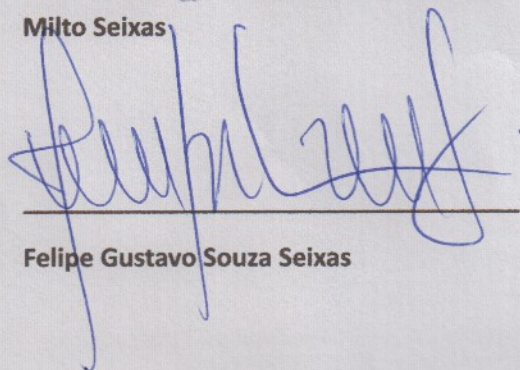 Milto Seixas
Felipe Gustavo Souza Seixas